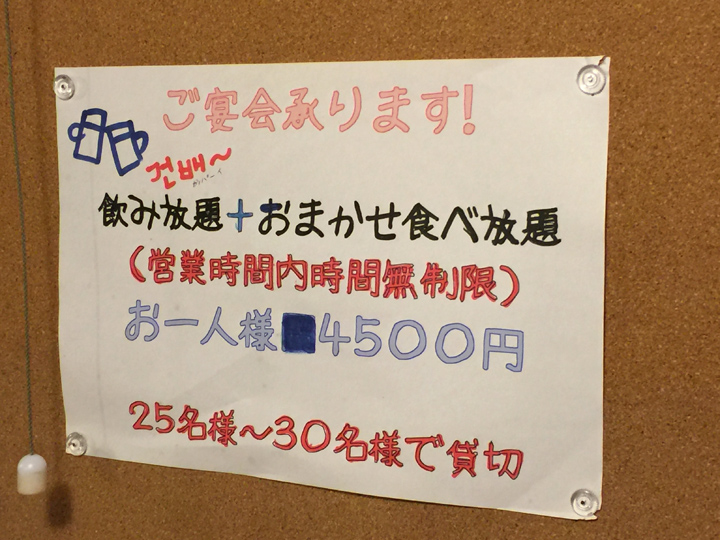 ご宴会承ります!
건배~
飲み放題+おまかせ食べ放題
(営業時間内時間無制限)
お一人様 4500円
25名様~30名様で貸切